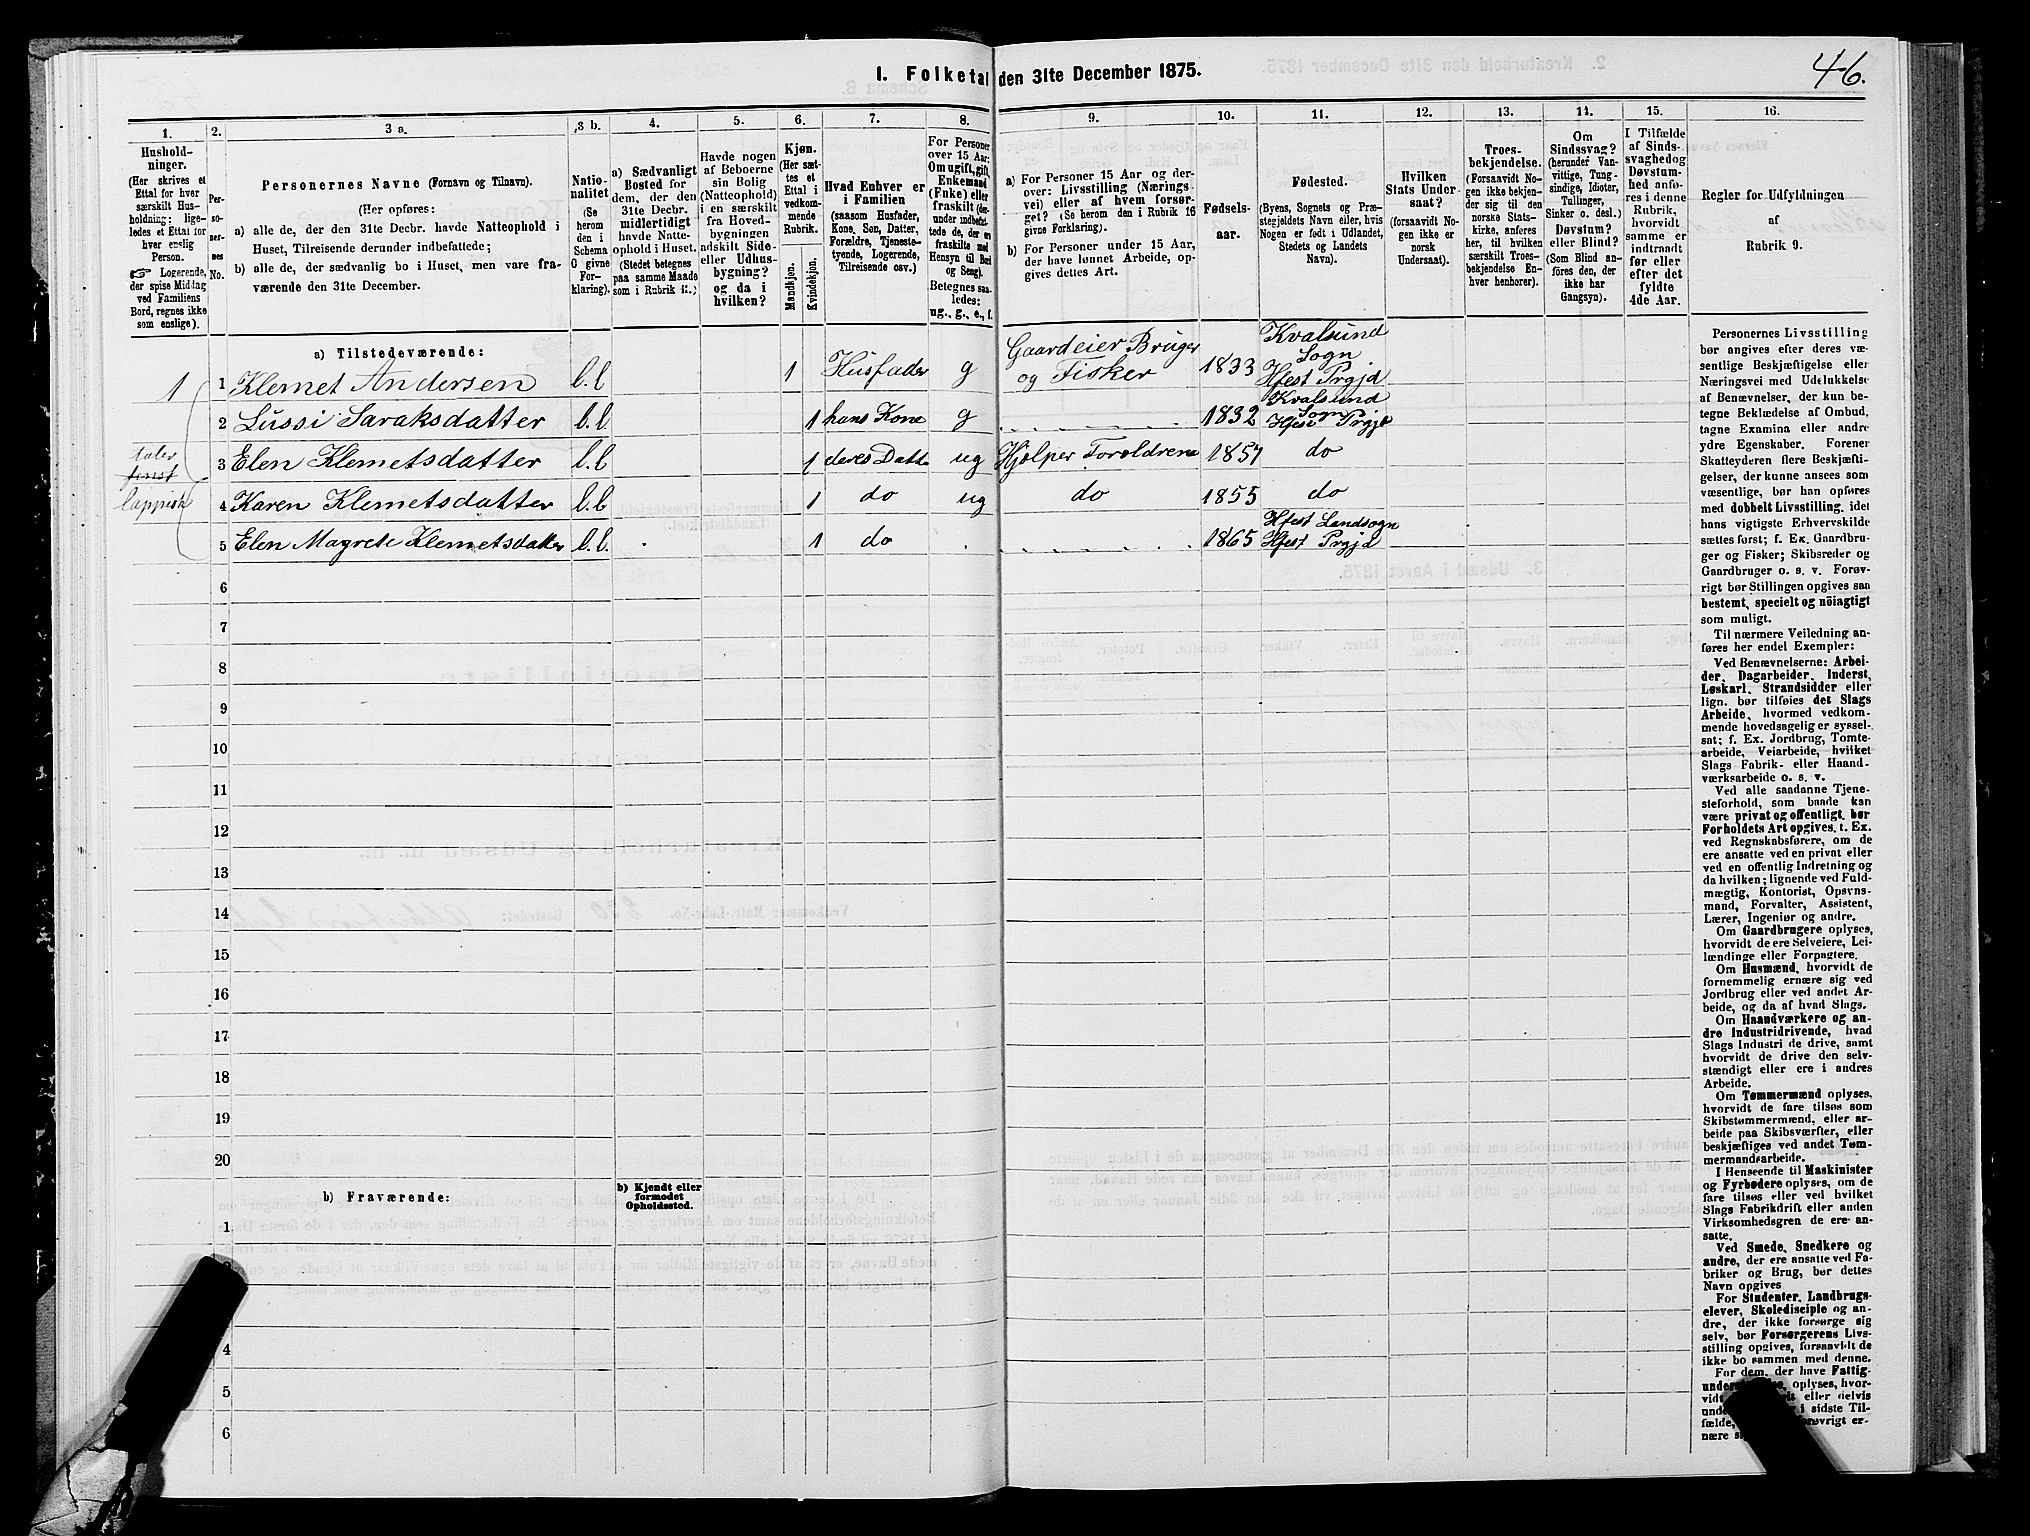 46.
I. Folketal den 31te December 1875.
1.
2.
3 a.
3 b.
4.
5.
6.
7.
8.
9.
10.
11.
12.
13.
14.
15.
16.
Hushold-
ninger.
(Her skrives et
Ettal for hver
særskilt Hus-
holdning; lige-
ledes et Ettal for
hver enslig
Person.
☞ Logerende,
der spise Middag
ved Familiens
Bord, regnes ikke
som enslige).
Per-
so-
ner-
nes
No.
Personernes Navne (Fornavn og Tilnavn).
(Her opføres:
a) alle de, der den 31te Decbr. havde Natteophold i
Huset, Tilreisende derunder indbefattede;
b) alle de, der sædvanlig bo i Huset, men vare fra-
værende den 31te December.
Natio-
nalitet
(Se
herom
den i
Schema
C givne
For-
klaring).
a) Sædvanligt
Bosted for
dem, der den
31te Decbr.
midlertidigt
havde Natte-
ophold i Huset.
(Stedet betegnes
paa samme Maade
som i Rubrik 11.)
Havde nogen
af Beboerne
sin Bolig
(Natteophold)
i en særskilt
fra Hoved-
bygningen
adskilt Side-
eller Udhus-
bygning?
og da i
hvilken?
Kjøn.
(Her sæt-
tes et
Ettal i
vedkom-
mende
Rubrik.
Mandkjøn.
Kvindekjøn.
Hvad Enhver er
i Familien
(saasom Husfader,
Kone, Søn, Datter,
Forældre, Tjeneste-
tyende, Logerende,
Tilreisende osv.)
For Personer
over 15 Aar:
Om ugift, gift,
Enkemand
(Enke) eller
fraskilt (der-
under indbefat-
tede de, der ere
fraskilte med
Hensyn til Bord
og Seng).
Betegnes saa-
ledes:
ug., g., e., f.
a) For Personer 15 Aar og der-
over: Livsstilling (Nærings-
vei) eller af hvem forsør-
get? (Se herom den i Rubrik 16
givne Forklaring).
b) For Personer under 15 Aar,
der have lønnet Arbeide, op-
gives dettes Art.
Fødsels-
aar.
Fødested.
(Byens, Sognets og Præ-
stegjeldets Navn eller, hvis
Nogen er født i Udlandet,
Stedets og Landets
Navn).
Hvilken
Stats Under-
saat?
(forsaavidt No-
gen ikke er
norsk
Undersaat).
Troes-
bekjendelse.
(Forsaavidt No-
gen ikke bekjen-
der sig til den
norske Stats-
kirke, anføres
her, til hvilken
særskilt Troes-
bekjendelse En-
hver henhorer).
Om
Sindssvag?
(herunder Van-
vittige, Tung-
sindige, Idioter,
Tullinger,
Sinker o. desl.).
Døvstum?
eller Blind?
(Som Blind an-
føres den, der
ikke har
Gangsyn).
I Tilfælde
af Sinds-
svaghed og
Døvstum-
hed anfø-
res i denne
Rubrik,
hvorvidt
samme er
indtraadt
før eller
efter det
fyldte
4de Aar.
Regler for Udfyldningen
af
Rubrik 9.
a) Tilstedeværende:
1 1 Klemet Andersen l.l 1 Husfader g Gaardeier Bruger og Fisker 1833 Kvalsund Sogn Hfest Prgjd
2 Lussi Saraksdatter l.l 1 hans Kone g 1832 Kvalsund Sogn Hfest Prgjd
taler
finst
lappisk
3 Elen Klemetsdatter l.l 1 deres Datt ug Hjelper Foroldrene 1857 do
4 Karen Klemetsdatter l.l 1 do ug do 1855 do
5 Elen Magrete Klemetsdatter l.l. 1 do 1865 Hfest Landsogn Hfest Prgjd
6
7
8
9
10
11
12
13
14
15
16
17
18
19
20
b) Fraværende:
b) Kjendt eller
formodet
Opholdssted.
1
4
5
6
Personernes Livsstilling
bør angives efter deres væ-
sentlige Beskjæftigelse eller
Næringsvei med Udelukkelse
af Benævnelser, der kun be-
tegne Beklædelse af Ombud,
tagne Examina eller andre
ydre Egenskaber. Forener
Skatteyderen flere Beskjæfti-
gelser, der kunne ansees som
væsentlige, bør han opføres
med dobbelt Livsstilling, idet
hans vigtigste Erhvervskilde
sættes først; f. Ex. Gaardbru-
ger og Fisker; Skibsreder og
Gaardbruger o. s. v. Forøv-
rigt bør Stillingen opgives saa
bestemt, specielt og nöiagtigt
som muligt.
Til nærmere Veiledning an-
føres her endel Exempler:
Ved Benævnelserne: Arbei-
der, Dagarbeider, Inderst,
Løskarl, Strandsidder eller
lign. bør tilføies det Slags
Arbeide, hvormed vedkom-
mende hovedsagelig er syssel-
sat; f. Ex. Jordbrug, Tomte-
arbeide, Veiarbeide, hvilket
Slags Fabrik- eller Haand-
værksarbeide o. s. v.
Ved alle saadanne Tjene-
steforhold, som baade kan
være privat og offentligt, bør
Forholdets Art opgives, t. Ex.
ved Regnskabsførere, om de
ere ansatte ved en privat eller
ved en offentlig Indretning og
da hvilken; lignende ved Fuld-
mægtig, Kontorist, Opsyns-
mand, Forvalter, Assistent,
Lærer, Ingeniør og andre.
Om Gaardbrugere oplyses,
hvorvidt de ere Selveiere, Lei-
lændinge eller Forpagtere.
Om Husmænd, hvorvidt de
fornemmelig ernære sig ved
Jordbrug eller ved andet Ar-
beide, og da af hvad Slags.
Om Haandværkere og an-
dre Industridrivende, hvad
Slags Industri de drive, samt
hvorvidt de drive den selv-
stændigt eller ere i andres
Arbeide.
Om Tømmermænd oplyses,
hvorvidt de fare tilsøs som
Skibstømmermænd, eller ar-
beide paa Skibsværfter, eller
beskjæftiges ved andet Tøm-
mermandsarbeide.
I Henseende til Maskinister
og Fyrbødere oplyses, om de
fare tilsøs eller ved hvilket
Slags Fabrikdrift eller anden
Virksomhedsgren de ere an-
satte.
Ved Smede, Snedkere og
andre, der ere ansatte ved Fa-
briker og Brug, bør dettes
Navn opgives
For Studenter, Landbrugs-
elever, Skoledisciple og an-
dre, der ikke forsørge sig
selv, bør Forsørgerens Livs-
stilling opgives, forsaavidt de
ikke bo sammen med denne.
For dem, der have Fattig-
oplyses, hvor-
eller delvis
i sidste Til-